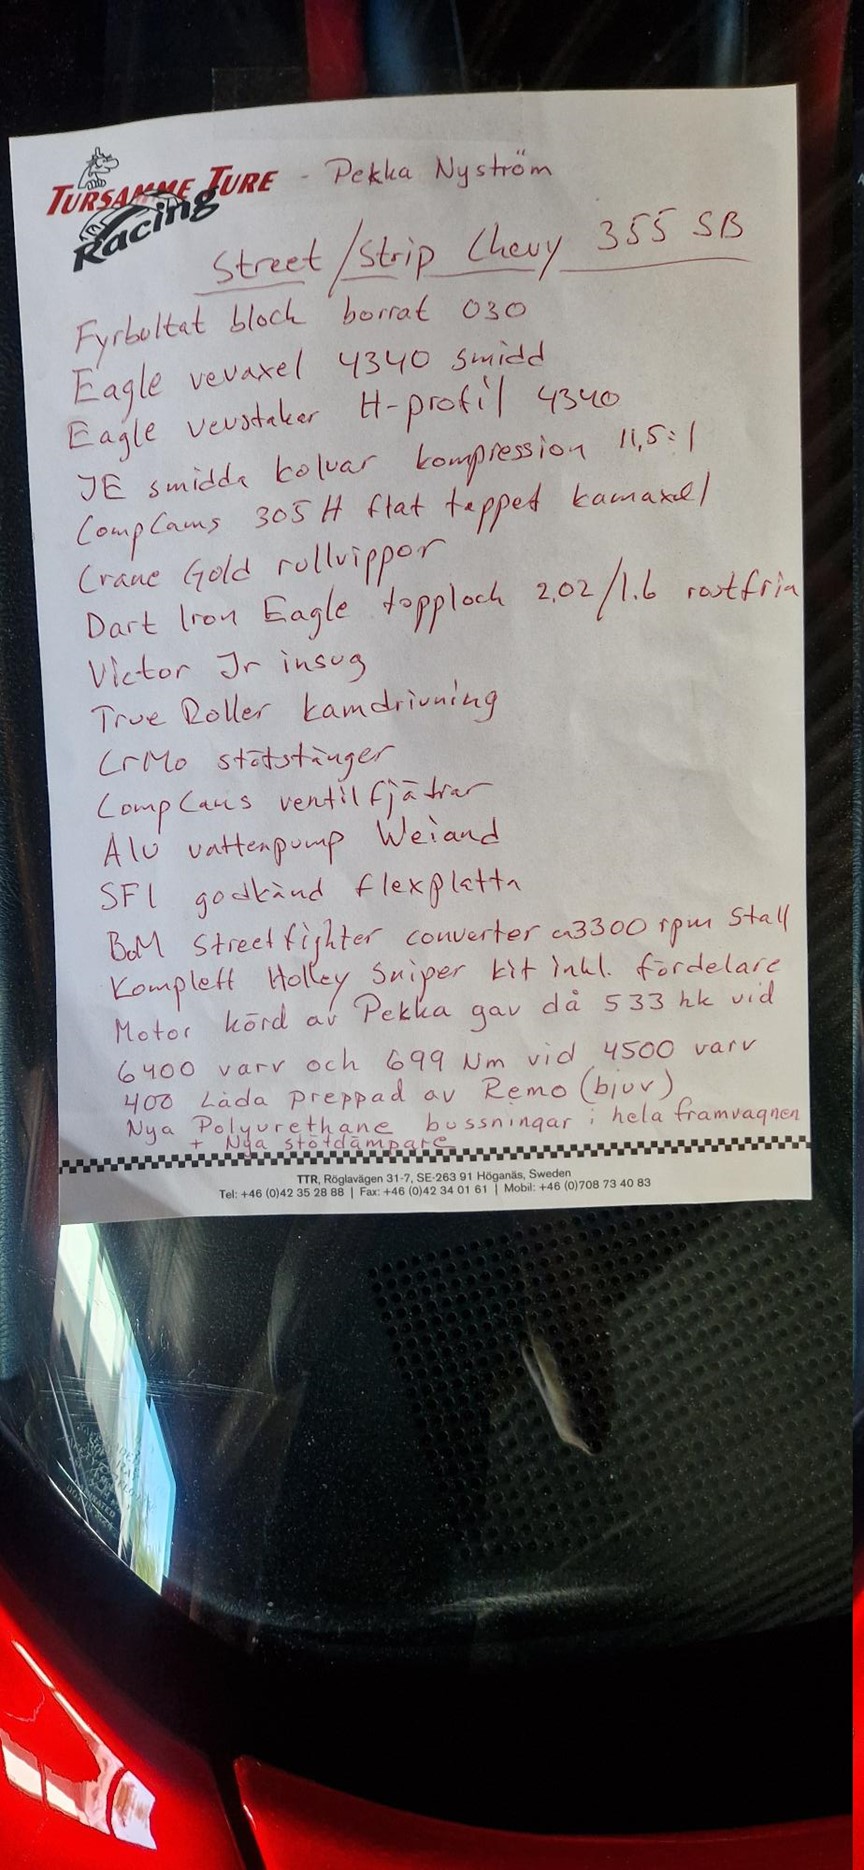 TURSAMME TURE Racing - Pekka Nyström
Street/Strip Chevy 355 SB
Fyrbultat block borrat 030
Eagle vevaxel 4340 smidd
Eagle vevstaker H-profil 4340
JE smidda kolvar kompression 11,5:1
CompCams 305 H flat tappet kamaxel
Crane Gold rullvippor
Dart Iron Eagle topplock 2,02/1.6 rostfria
Victor Jr insug
True Roller kamdrivning
CrMo stötstänger
CompCams ventilfjädrar
Alu vattenpump Weiand
SFI godkänd flexplatta
B&M Streetfighter converter ca3300 rpm Stall
Komplett Holley Sniper kit inkl. fördelare
Motor körd av Pekka gav då 533 hk vid
6400 varv och 699 Nm vid 4500 varv
400 Låda preppad av Remo (bjuv)
Nya Polyurethane bussningar i hela framvagnen
+ Nya stötdämpare
TTR, Röglavägen 31-7, SE-263 91 Höganäs, Sweden
Tel: +46 (0)42 35 28 88 | Fax: +46 (0)42 34 01 61 | Mobil: +46 (0)708 73 40 83